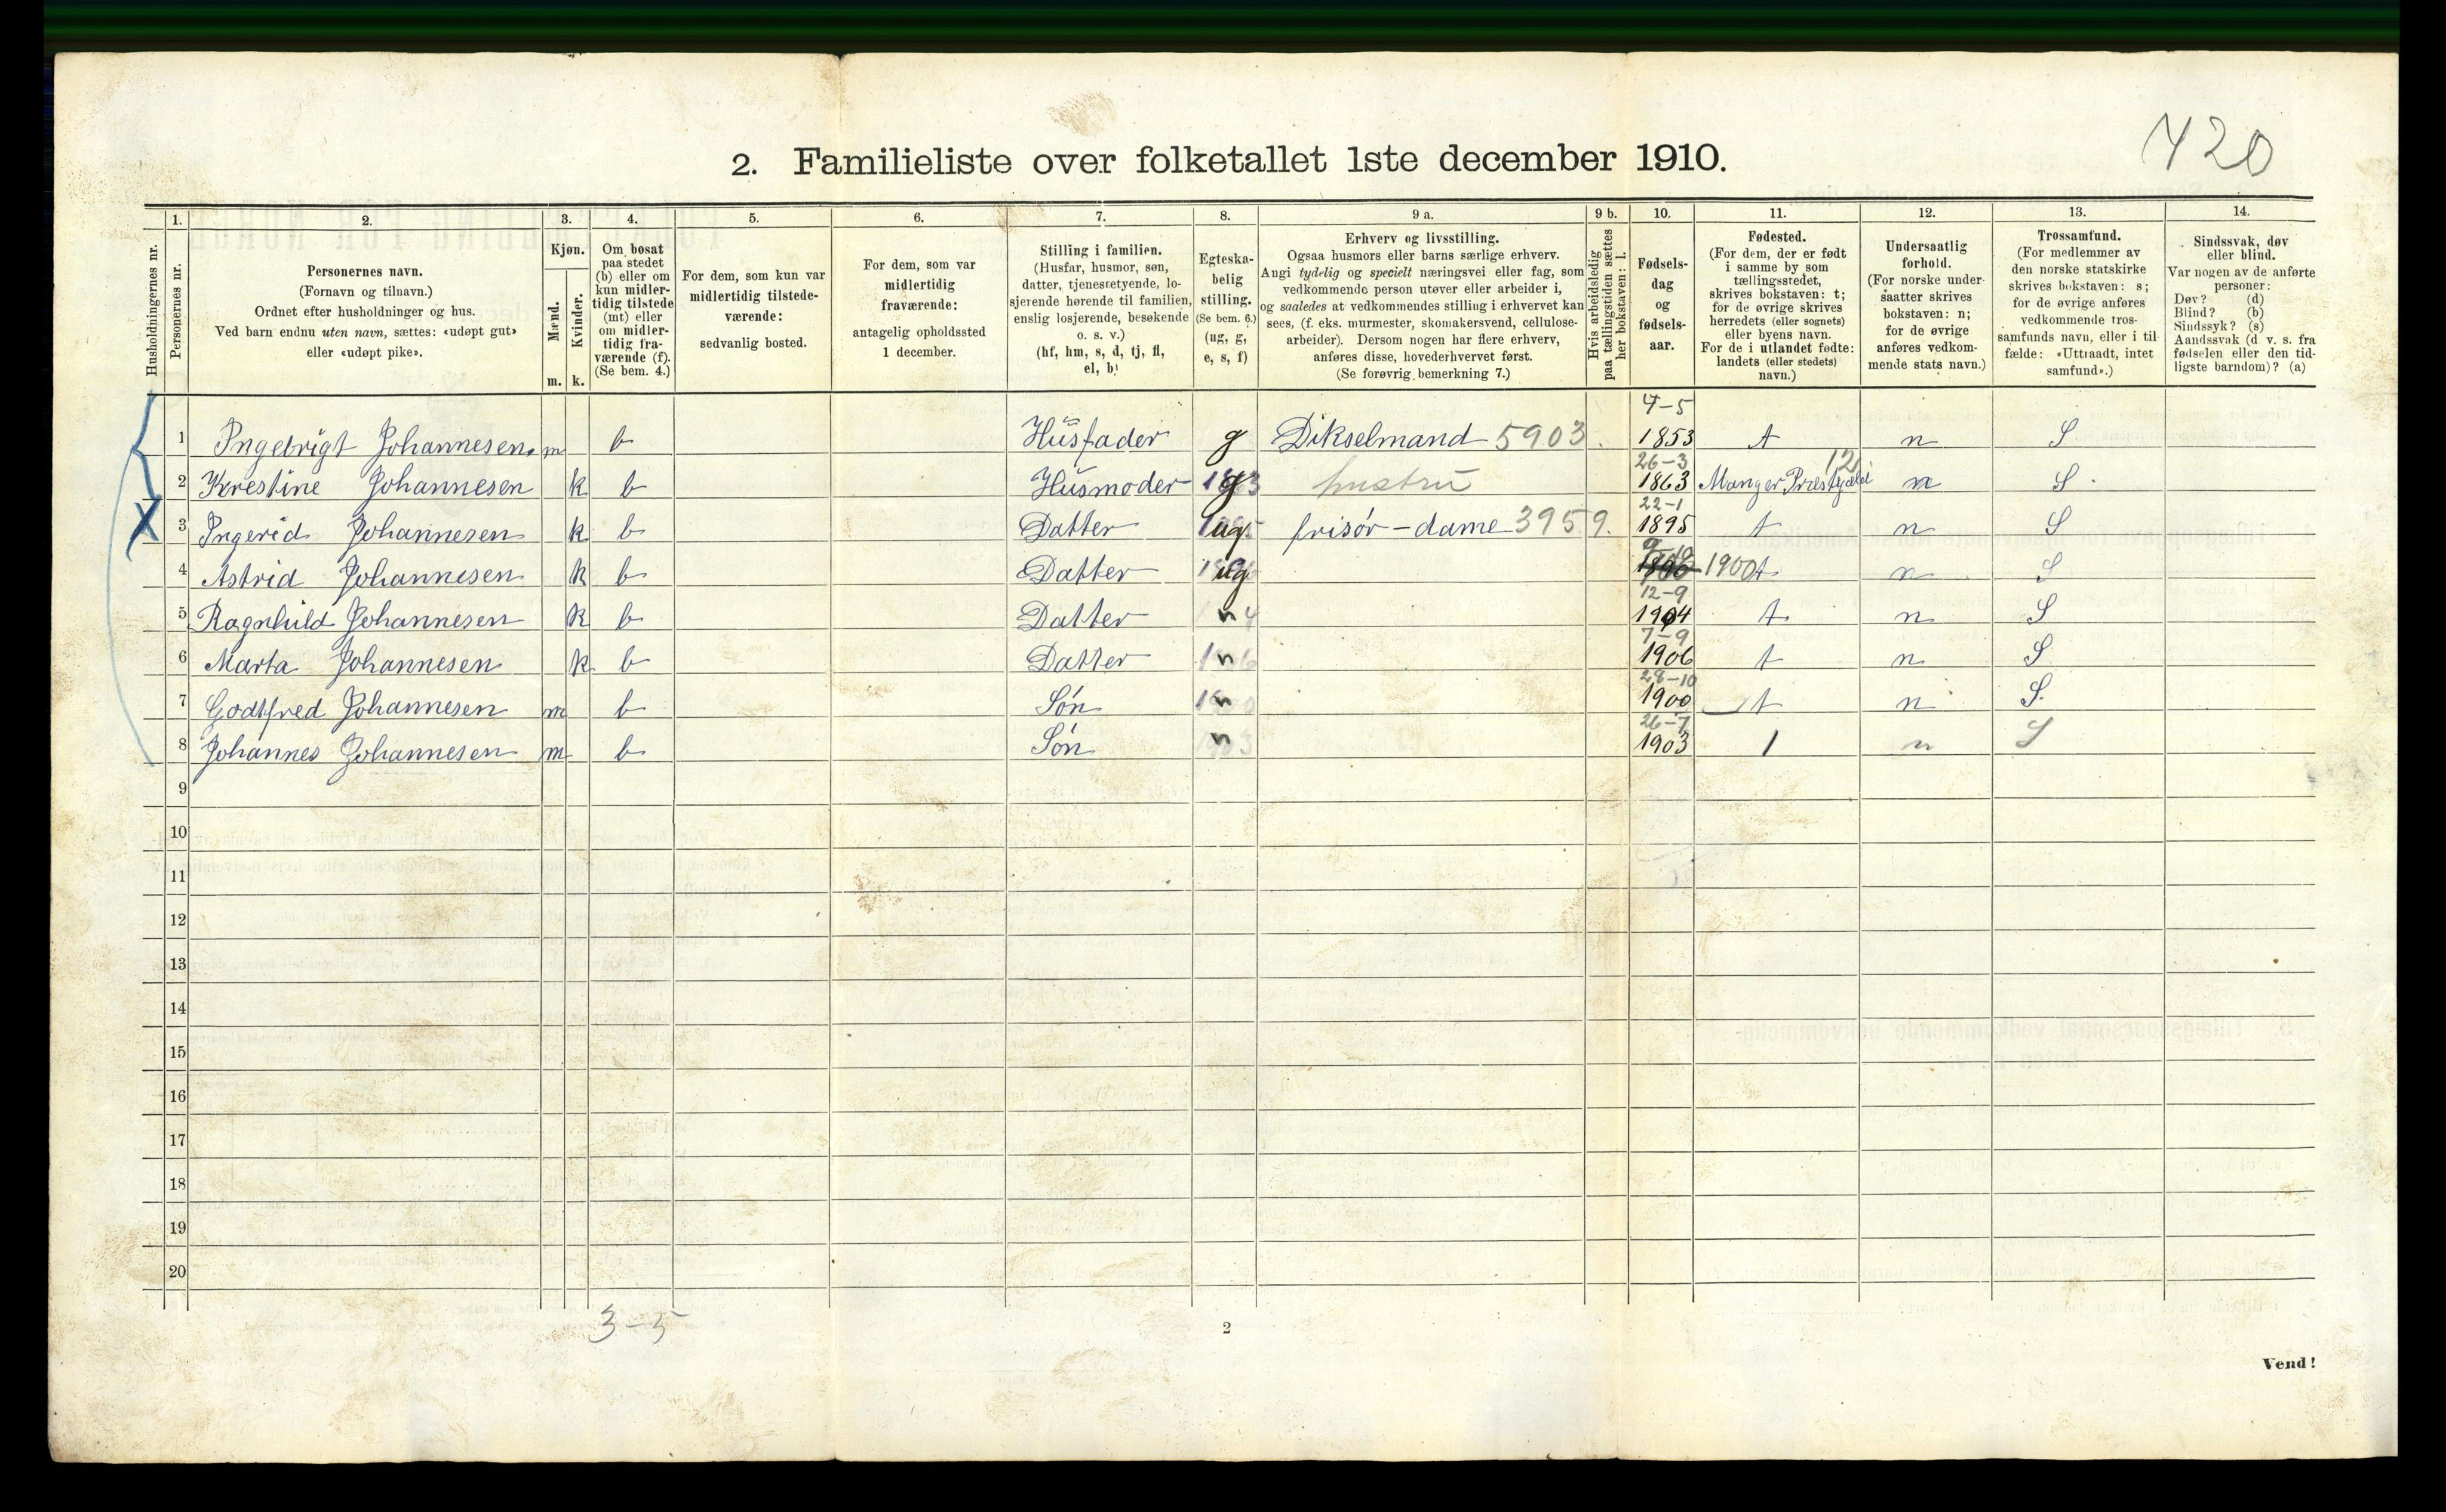 420
2. Familieliste over folketallet 1ste december 1910.
1. 2. 3. 4. 5. 6. 7. 8. 9 a. 9 b. 10. 11. 12. 13. 14.
Husholdningernes nr.
Personernes nr.
Personernes navn.
(Fornavn og tilnavn.)
Ordnet efter husholdninger og hus.
Ved barn endnu uten navn, sættes: «udøpt gut»
eller «udøpt pike».
Kjøn.
Mænd.
Kvinder.
m. k.
Om bosat
paa stedet
(b) eller om
kun midler-
tidig tilstede
(mt) eller
om midler-
tidig fra-
værende (f).
(Se bem. 4.)
For dem, som kun var
midlertidig tilstede-
værende:
sedvanlig bosted.
For dem, som var
midlertidig
fraværende:
antagelig opholdssted
1 december.
Stilling i familien.
(Husfar, husmor, søn,
datter, tjenestetyende, lo-
sjerende hørende til familien,
enslig losjerende, besøkende
o. s. v.)
(hf, hm, s, d, tj, fl,
el, b)
Egteska-
belig
stilling.
(Se bem. 6.)
(ug, g,
e, s, f)
Erhverv og livsstilling.
Ogsaa husmors eller barns særlige erhverv.
Angi tydelig og specielt næringsvei eller fag, som
vedkommende person utøver eller arbeider i,
og saaledes at vedkommendes stilling i erhvervet kan
sees, (f. eks. murmester, skomakersvend, cellulose-
arbeider). Dersom nogen har flere erhverv,
anføres disse, hovederhvervet først.
(Se forøvrig bemerkning 7.)
Hvis arbeidsledig
paa tællingstiden sættes
her bokstaven: l.
Fødsels-
dag
og
fødsels-
aar.
Fødested.
(For dem, der er født
i samme by som
tællingsstedet,
skrives bokstaven: t;
for de øvrige skrives
herredets (eller sognets)
eller byens navn.
For de i utlandet fødte:
landets (eller stedets)
navn.)
Undersaatlig
forhold.
(For norske under-
saatter skrives
bokstaven: n;
for de øvrige
anføres vedkom-
mende stats navn.)
Trossamfund.
(For medlemmer av
den norske statskirke
skrives bokstaven: s;
for de øvrige anføres
vedkommende tros-
samfunds navn, eller i til-
fælde: «Uttraadt, intet
samfund».)
Sindssvak, døv
eller blind.
Var nogen av de anførte
personer:
Døv? (d)
Blind? (b)
Sindssyk? (s)
Aandssvak (d. v. s. fra
fødselen eller den tid-
ligste barndom)? (a)
1 Ingebrigt Johannesen. m b Husfader g Dikselmand 5903. 4-5 1853 t n S
2 Krestine Johannesen k b Husmoder g hustru 26-3 1863 Manger Præstgjæld 12 n S
3 Ingerid Johannesen k b Datter ug frisør-dame 3959. 22-1 1895 t n S
4 Astrid Johannesen k b Datter ug 9-10 1900 t n S
5 Ragnhild Johannesen k b Datter n 12-9 1904 t n S
6 Marta Johannesen k b Datter n 7-9 1906 t n S
7 Godtfred Johannesen m b Søn n 28-10 1900 t n S.
8 Johannes Johannesen m b Søn n 26-7 1903 t n S
9
10
11
12
13
14
15
16
17
18
19
20
3-5
2
Vend!